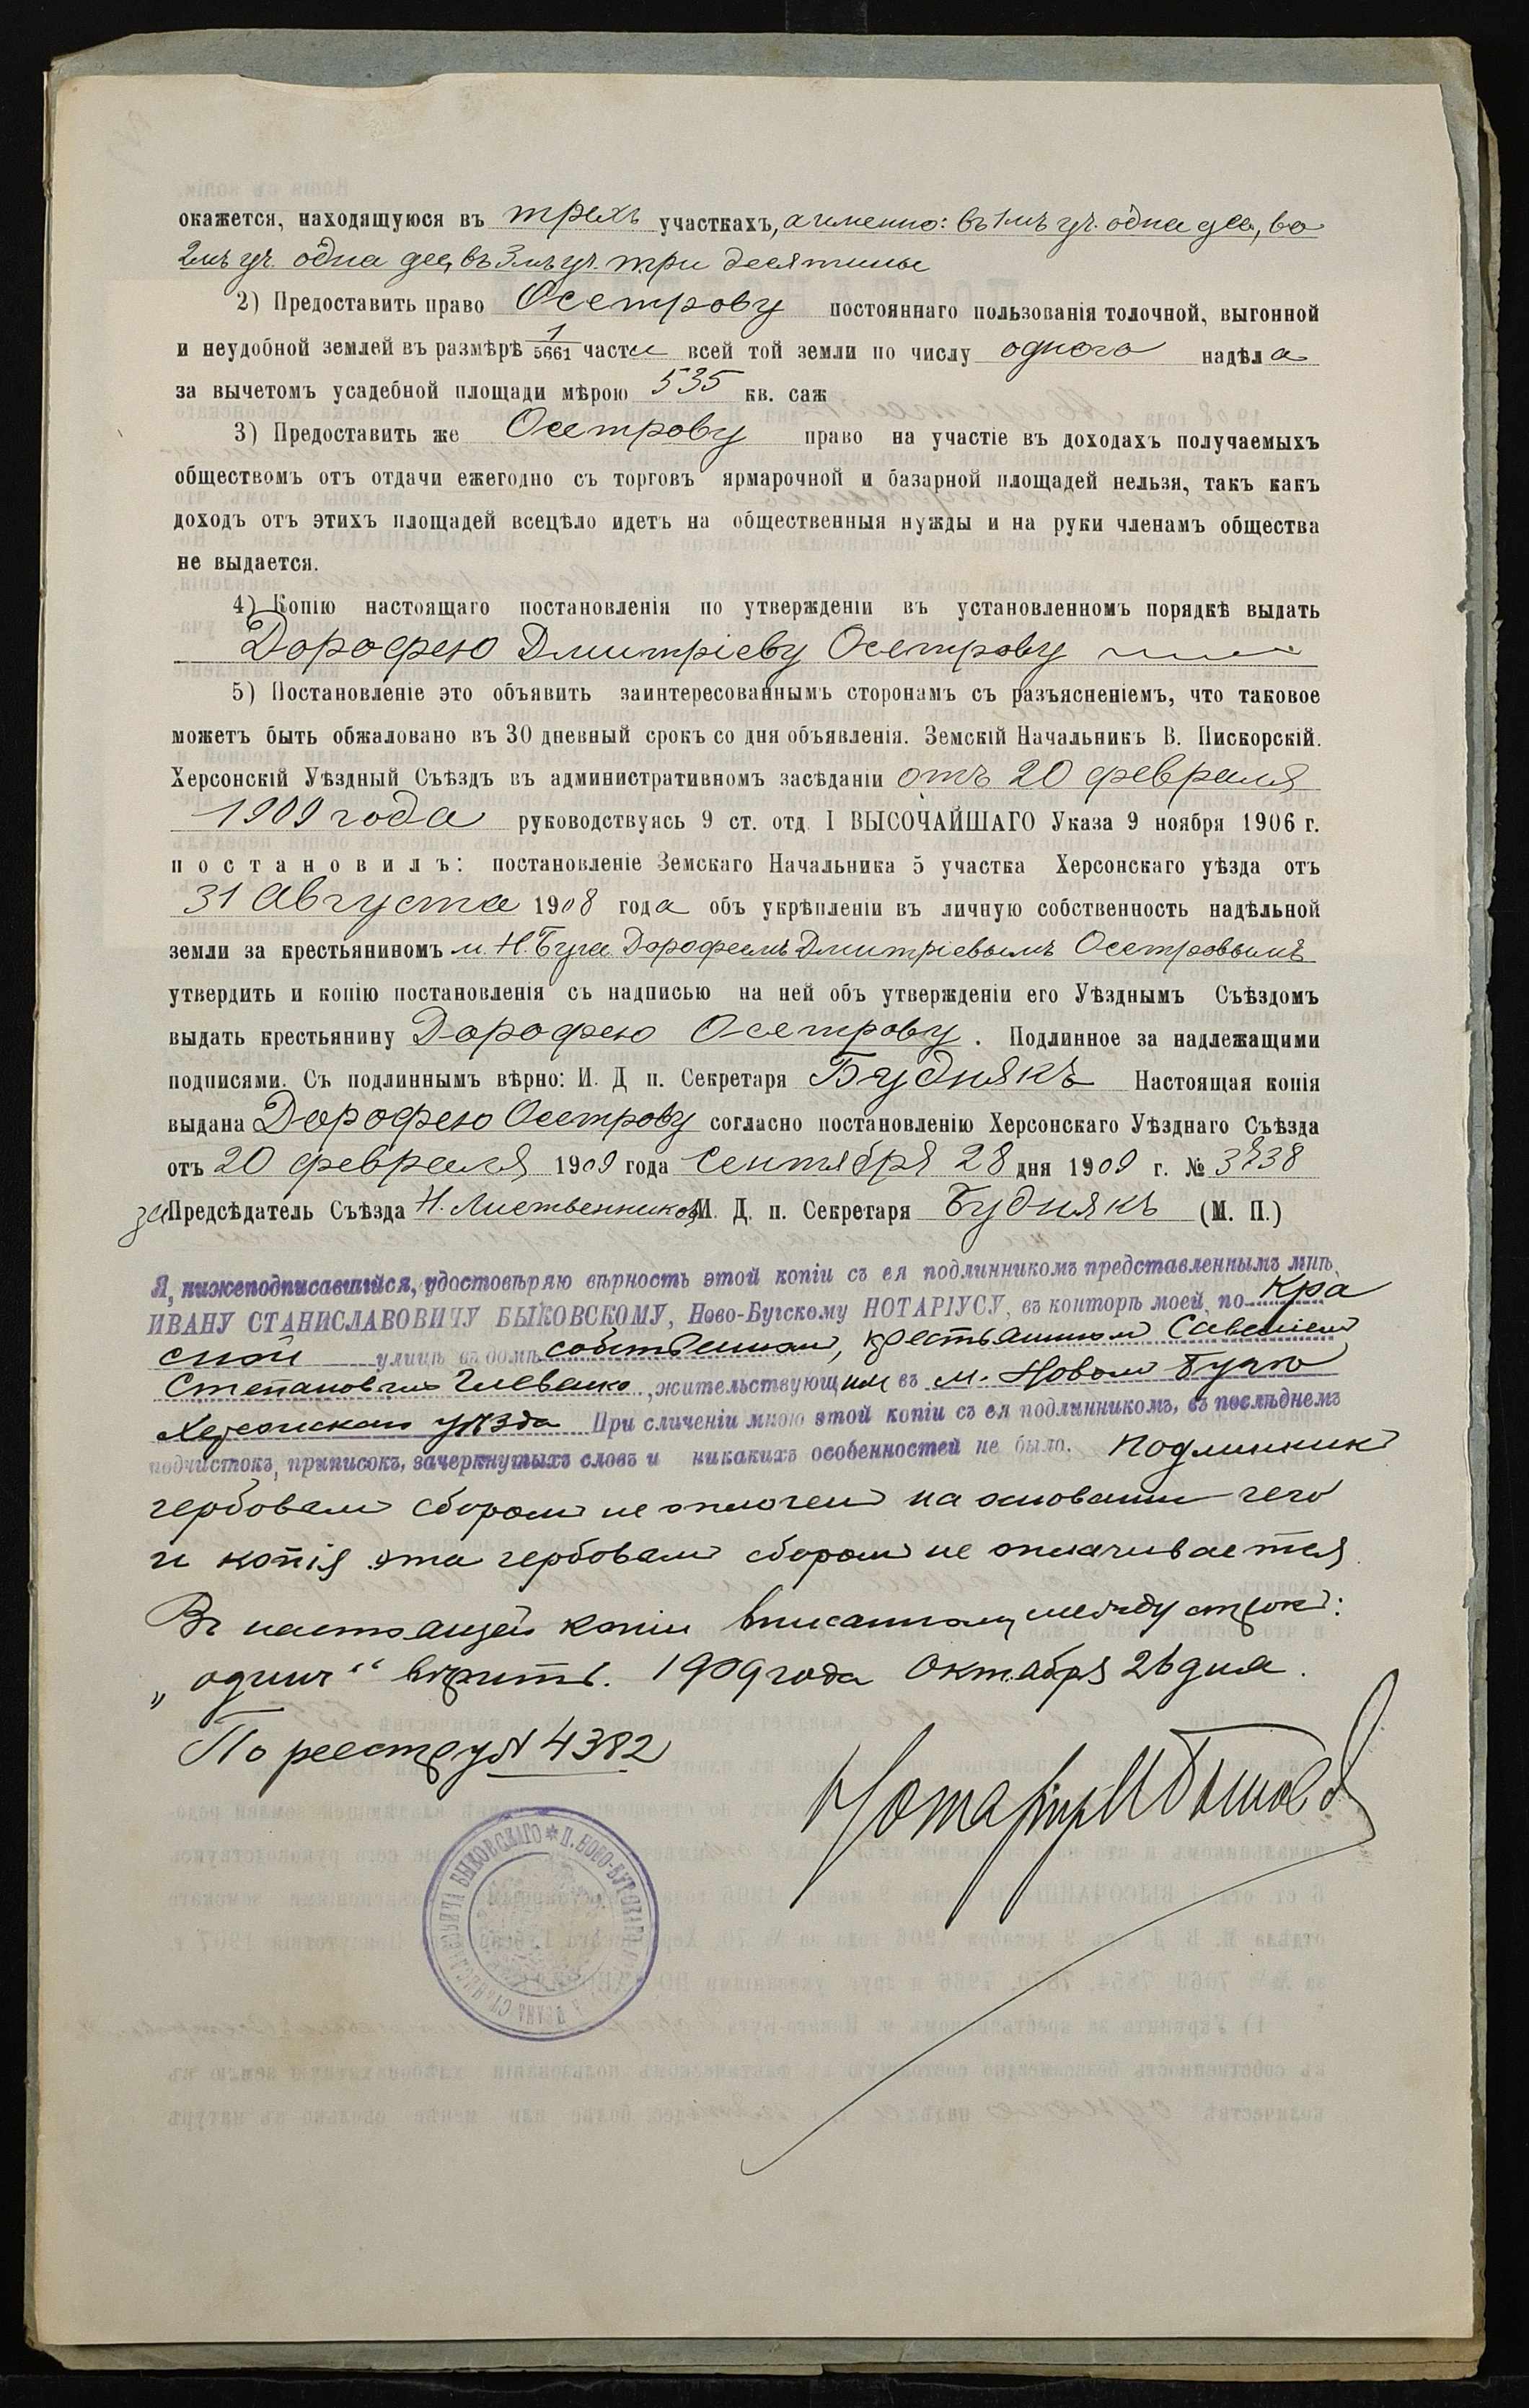 окажется, находящуюся въ трехъ участкахъ, а именно: въ 1мъ уч. одна дес, во
2мъ уч. одна дес, въ 3мъ уч. три десятины
2) Предоставить право Осетрову постояннаго пользованія толочной, выгонной
и неудобной землей въ размѣрѣ 1/5661 части всей той земли по числу одного надѣла
за вычетомъ усадебной площади мѣрою 535 кв. саж
3) Предоставить же Осетрову право на участіе въ доходахъ получаемыхъ
обществомъ отъ отдачи ежегодно съ торговъ ярмарочной и базарной площадей нельзя, такъ какъ
доходъ отъ этихъ площадей всецѣло идетъ на общественныя нужды и на руки членамъ общества
не выдается.
4) Копію настоящаго постановленія по утвержденіи въ установленномъ порядкѣ выдать
Дорофею Дмитріеву Осетрову
5) Постановленіе это объявить заинтересованнымъ сторонамъ съ разъясненіемъ, что таковое
можетъ быть обжаловано въ 30 дневный срокъ со дня объявленія. Земскій Начальникъ В. Пискорскій.
Херсонскій Уѣздный Съѣздъ въ административномъ засѣданіи отъ 20 февраля
1909 года руководствуясь 9 ст. отд. I ВЫСОЧАЙШАГО Указа 9 ноября 1906 г.
постановилъ: постановленіе Земскаго Начальника 5 участка Херсонскаго уѣзда отъ
31 Августа 1908 года объ укрѣпленіи въ личную собственность надѣльной
земли за крестьяниномъ м. Н. Буга Дорофеемъ Дмитріевымъ Осетровымъ
утвердить и копію постановленія съ надписью на ней объ утвержденіи его Уѣзднымъ Съѣздомъ
выдать крестьянину Дорофею Осетрову. Подлинное за надлежащими
подписями. Съ подлиннымъ вѣрно: И. Д п. Секретаря Буднякъ Настоящая копія
выдана Дорофею Осетрову согласно постановленію Херсонскаго Уѣзднаго Съѣзда
отъ 20 февраля 1909 года Сентября 28 дня 1909 г. №
за Предсѣдатель Съѣзда Н. Лиственниковъ И. Д. п. Секретаря Буднякъ (М. П.)
Я, нижеподписавшійся, удостовѣряю вѣрность этой копіи съ ея подлинникомъ представленнымъ мнѣ,
ИВАНУ СТАНИСЛАВОВИЧУ БЫКОВСКОМУ, Ново-Бугскому НОТАРІУСУ, въ конторѣ моей, по Кра
ской улицѣ въ домѣ собственном, крестьянином Савелием
Степановичем жительствующим въ м. Новом Буге
Херсонскаго уѣзда При сличеніи мною этой копіи съ ея подлинникомъ, въ послѣднемъ
подчистокъ, приписокъ, зачеркнутыхъ словъ и никакихъ особенностей не было. Подлинник
гербовым сбором не оплочен на основании чего
и копія эта гербовым сбором не оплачивается.
В настоящей копии вписанному между строк:
„один“ верить. 1909 года Октября 26 дня.
По реестру № 4382
Нотаріус И Быковский
ИВАНА СТАНИСЛАВОВИЧА БЫКОВСКАГО * П. НОВО-БУГСКАГО